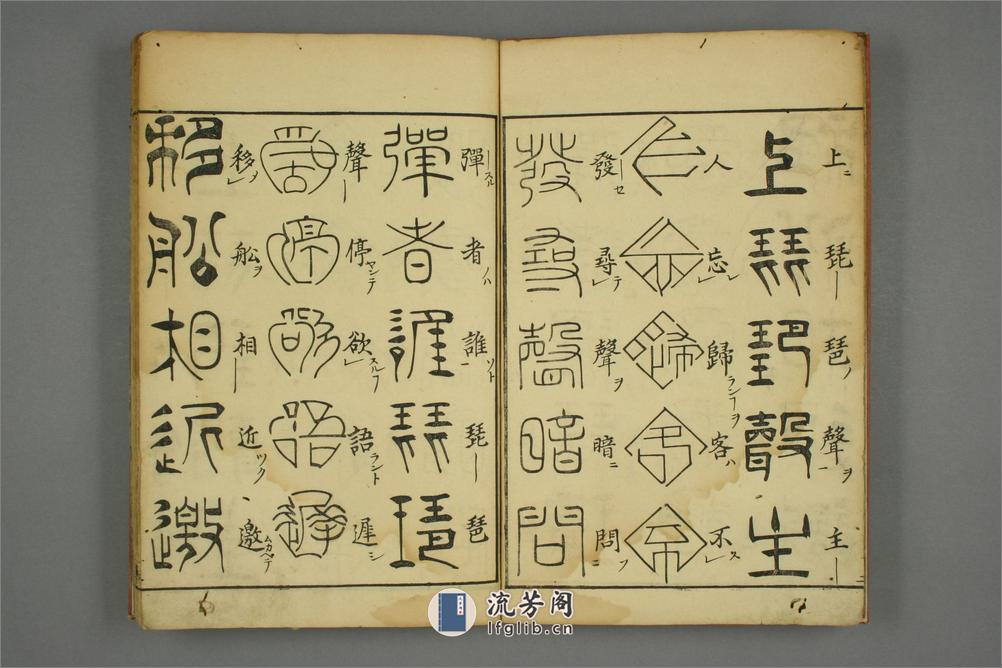 上ニ 琵ー 琶ノ 聲ヲ 主ー
上琵琶聲主
人 忘レ 歸ランーヲ 客ハ 不ス
人忘歸客不
發ーセ 尋テ 聲ヲ 暗ニ 問フ
發尋聲暗問
彈ースル 者ハ 誰ソト 琵ー 琶
彈者誰琵琶
聲ー 停ヤンテ 欲スルフ 語ラント 遲シ
聲停欲語遲
移ヲ 船ヲ 相ー 近ツク 邀ムカヘテ
移船相近邀
流芳阁
lfglib.cn